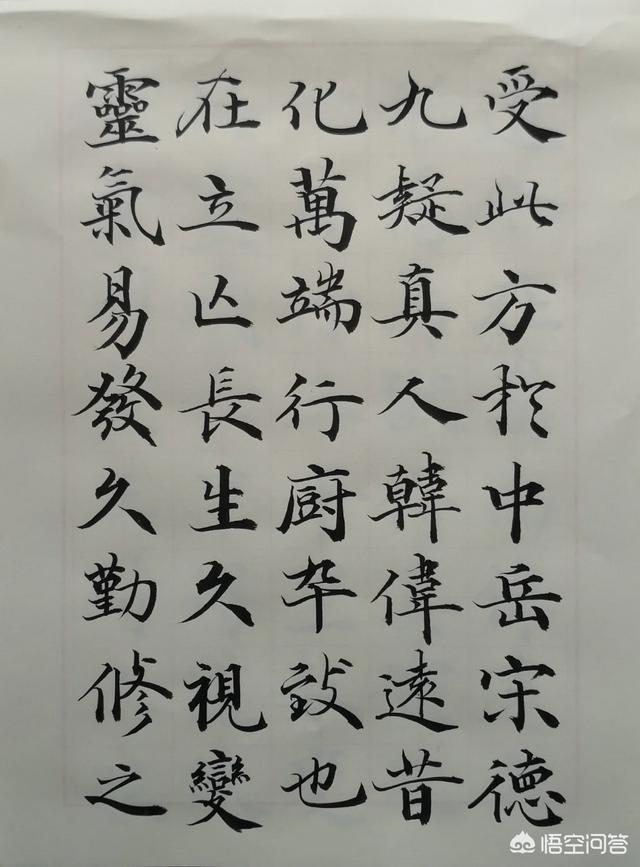 靈氣易發久勤修之
在立亾長生久視變
化萬端行厨卒致也
九疑真人韓偉遠昔
受此方於中岳宋德
悟空问答